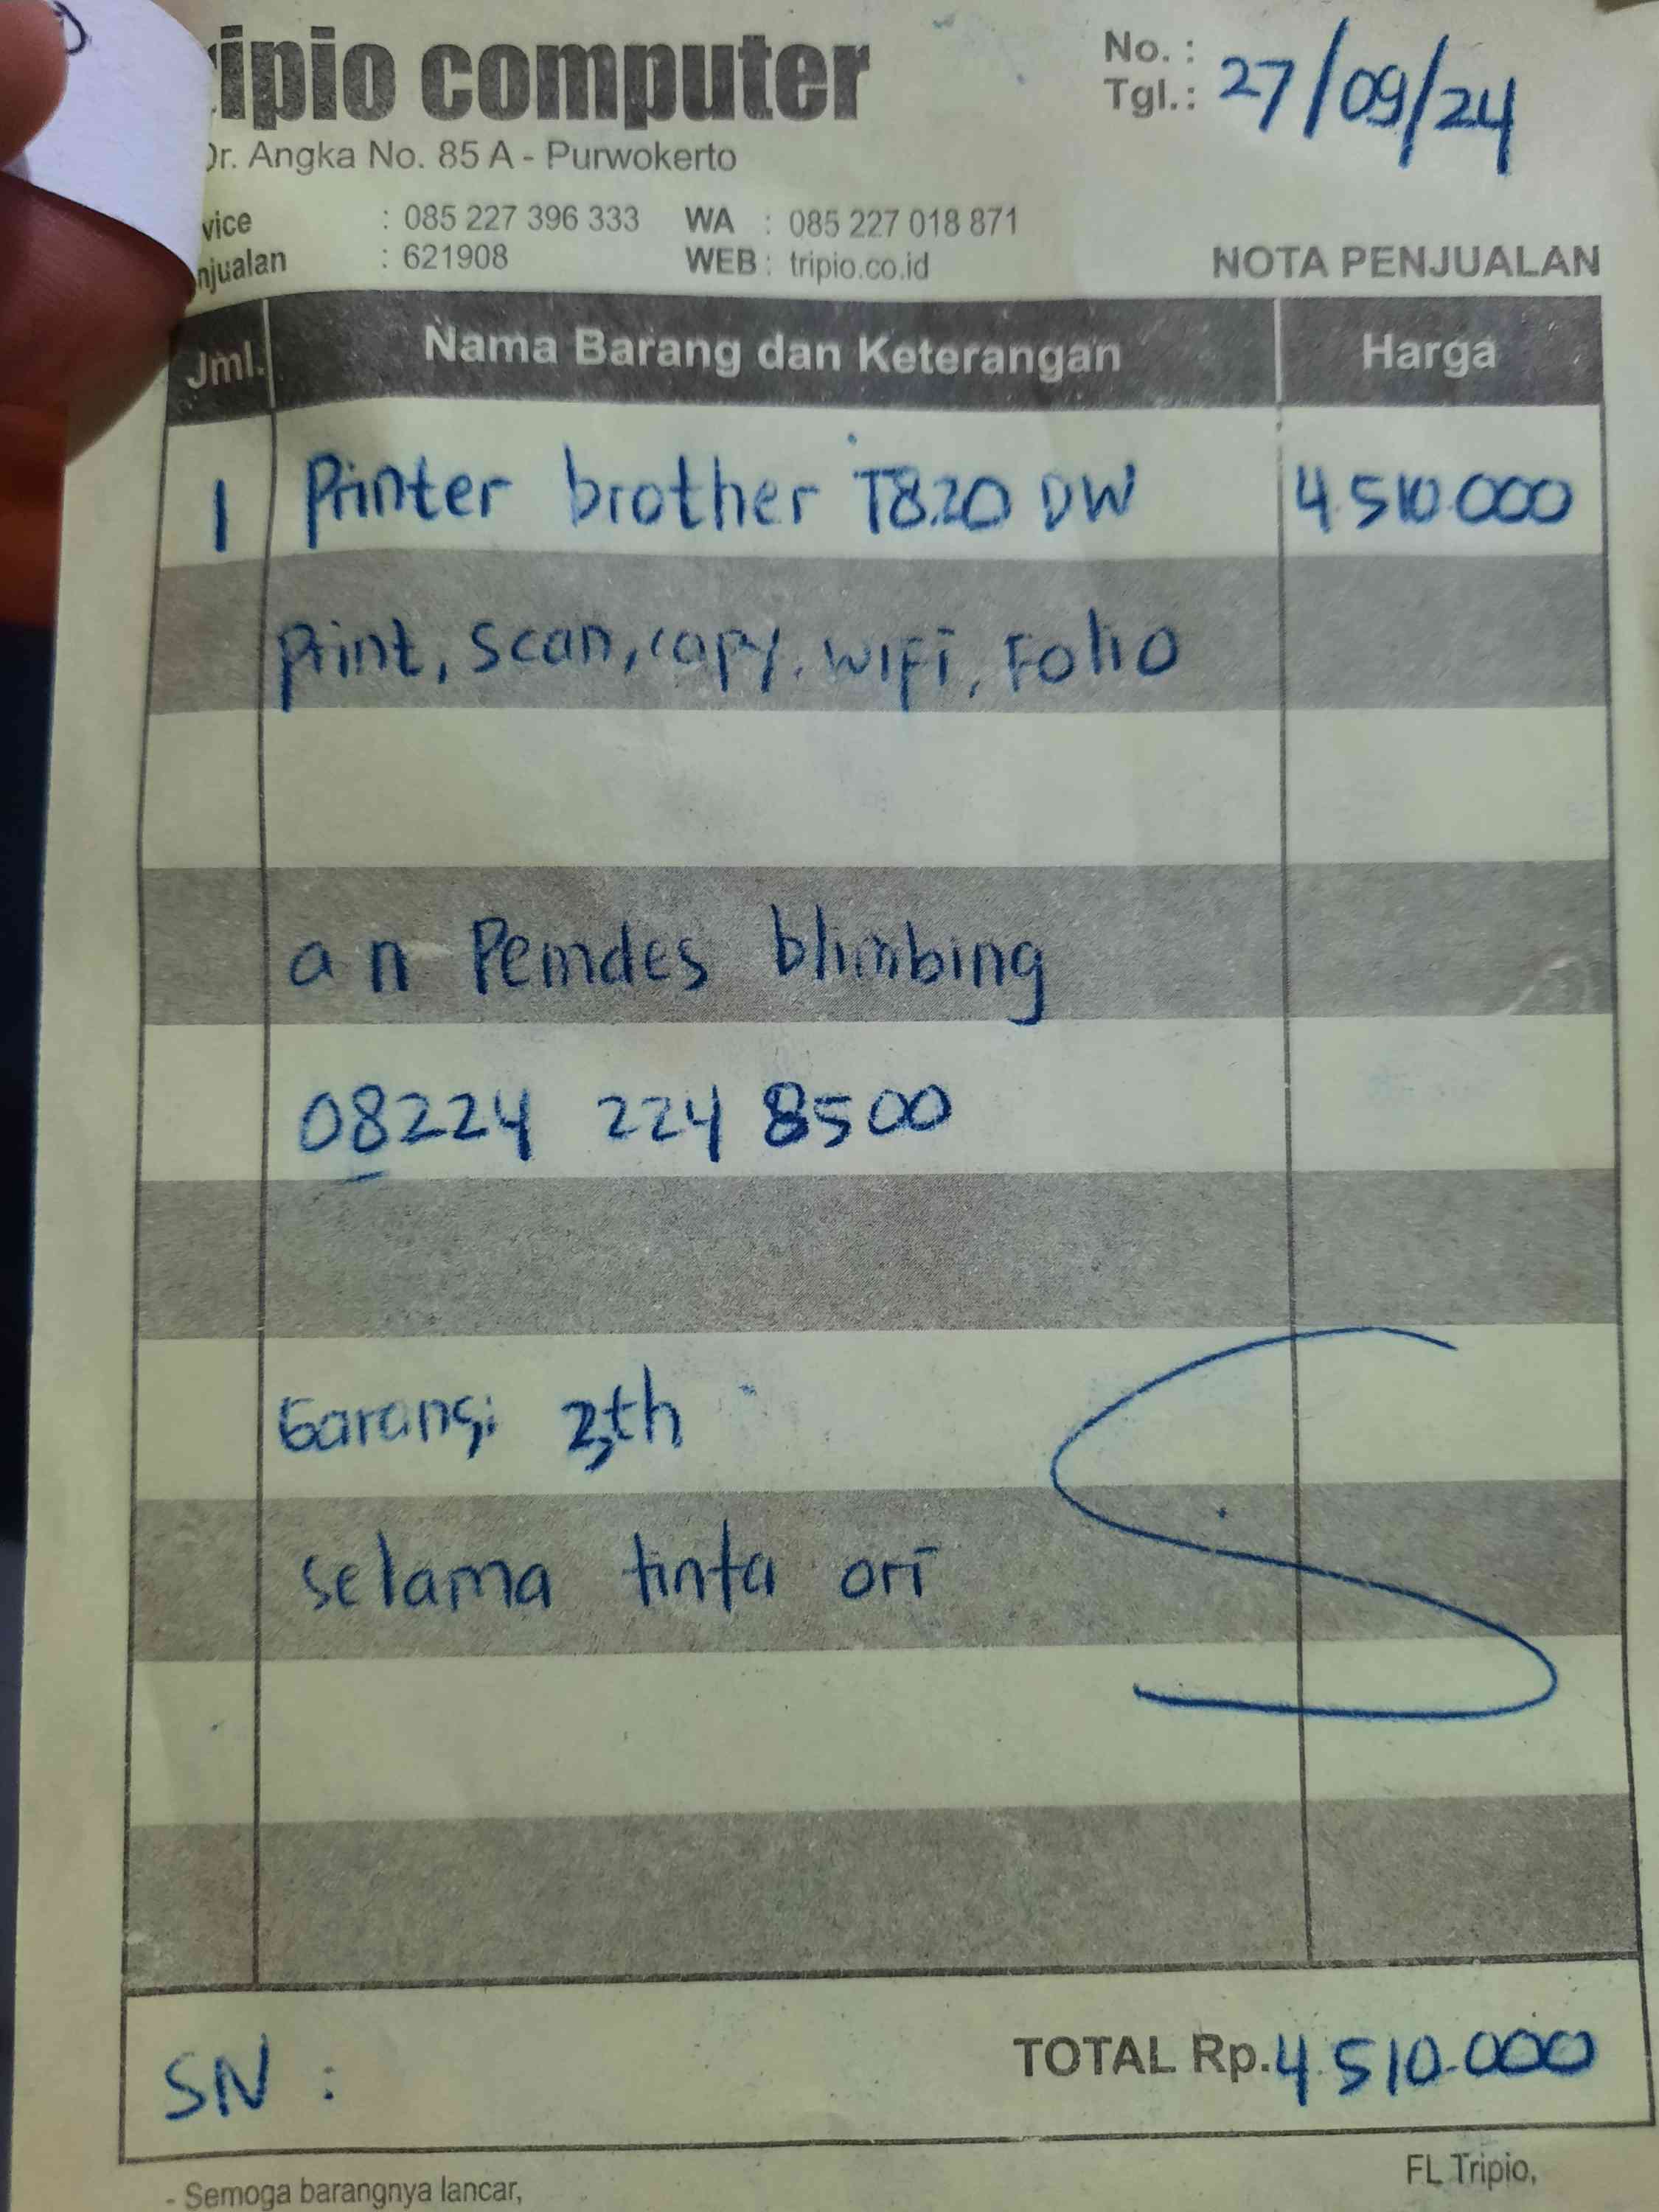 ripio computer
Dr. Angka No. 85 A - Purwokerto
No. :
Tgl.: 27/09/24
vice : 085 227 396 333 WA : 085 227 018 871
njualan : 621908 WEB : tripio.co.id
NOTA PENJUALAN
Jml. Nama Barang dan Keterangan Harga
1 Printer brother T820 DW 4.510.000
Print, scan, copy, wifi, Folio
an Pemdes blimbing
08224 224 8500
Garansi 2th
selama tinta ori
SN : TOTAL Rp. 4.510.000
- Semoga barangnya lancar,
FL Tripio,